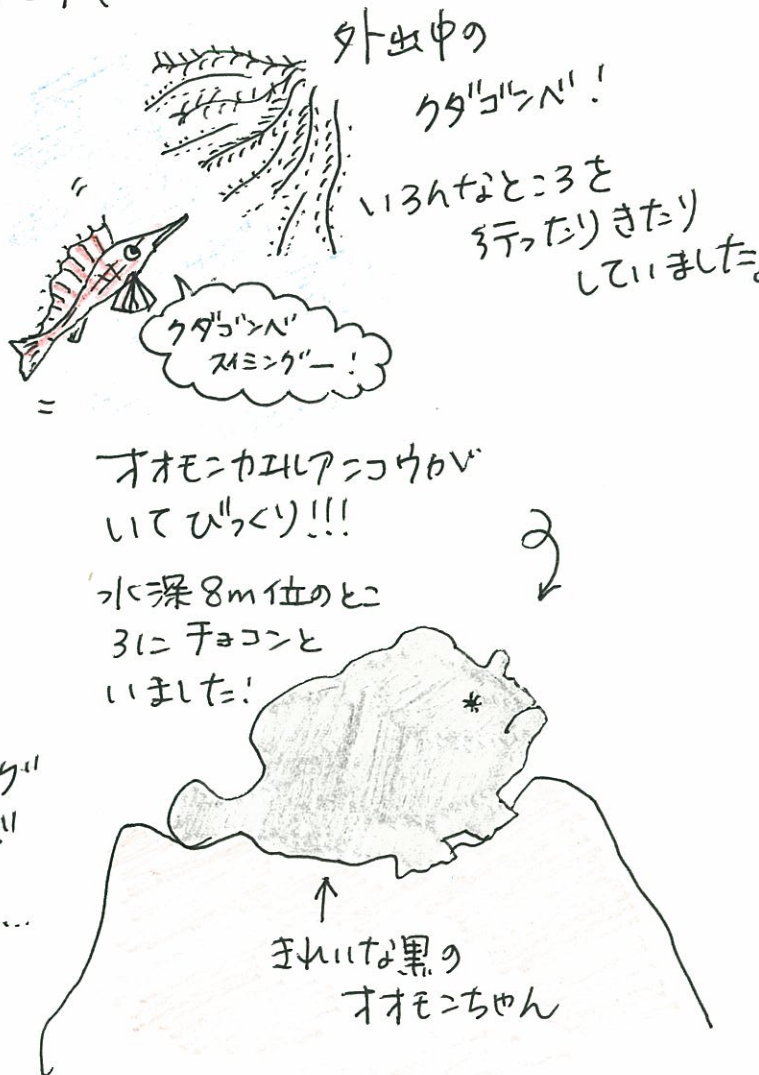 外出中の
クダゴンベ！
いろんなところを
行ったりきたり
していました。
クダゴンベ
スイミングー！
オオモンカエルアンコウが
いてびっくり!!!
水深8m位のとこ
ろに チョコンと
いました！
きれいな黒の
オオモンちゃん